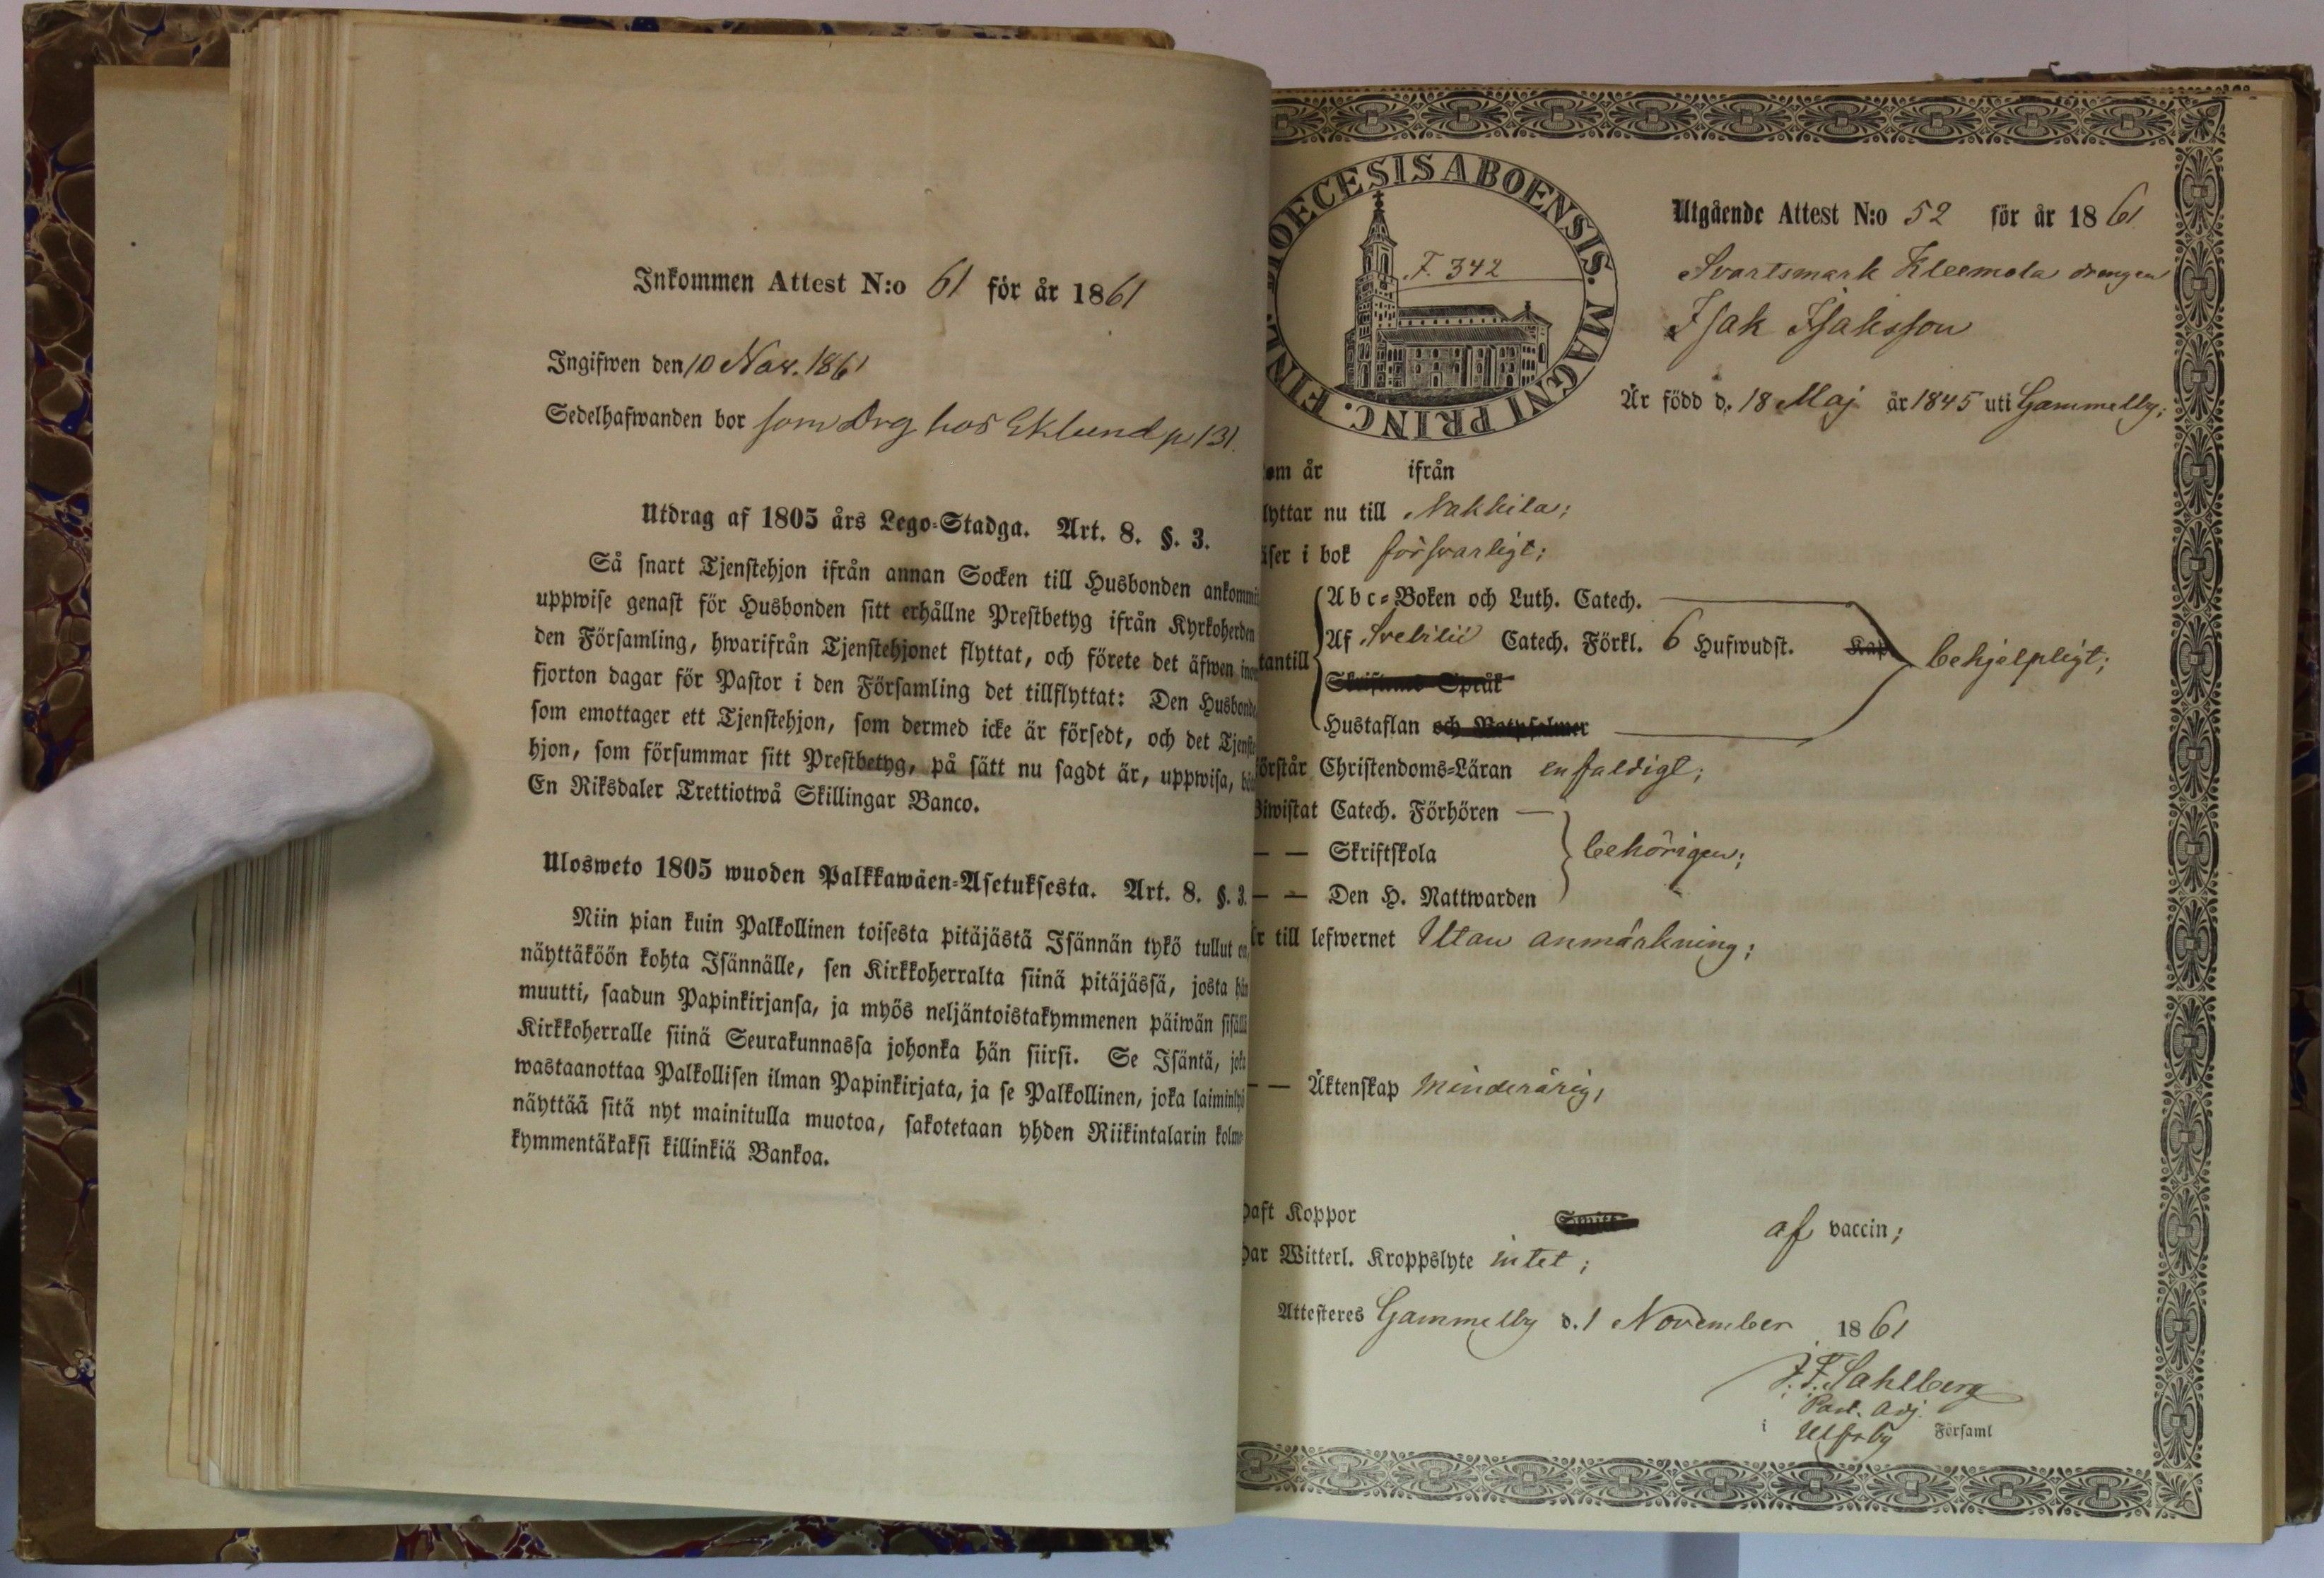 Inkommen Attest N:o 61 för år 1861
Ingifwen den 10 Nov. 1861
Sedelhafwanden bor som drg hos Eklund p 131.
Utdrag af 1805 års Lego-Stadga. Art. 8. §. 3.
Så snart Tjenstehjon ifrån annan Socken till Husbonden ankommit
uppwise genast för Husbonden sitt erhållne Prestbetyg ifrån Kyrkoherden
den Församling, hwarifrån Tjenstehjonet flyttat, och förete det äfwen inom
fjorton dagar för Pastor i den Församling det tillflyttat: Den Husbonde
som emottager ett Tjenstehjon, som dermed icke är försedt, och det Tjenste
hjon, som försummar sitt Prestbetyg, på sätt nu sagdt är, uppwisa, böte
En Riksdaler Trettiotwå Skillingar Banco.
Ulosweto 1805 wuoden Palkkawäen-Asetuksesta. Art. 8. §. 3.
Niin pian kuin Palkollinen toisesta pitäjästä Isännän tykö tullut on,
näyttäköön kohta Isännälle, sen Kirkkoherralta siinä pitäjässä, josta hän
muutti, saadun Papinkirjansa, ja myös neljäntoistakymmenen päiwän sisällä
Kirkkoherralle siinä Seurakunnassa johonka hän siirsi. Se Isäntä, joka
wastaanottaa Palkollisen ilman Papinkirjata, ja se Palkollinen, joka laiminlyö
näyttää sitä nyt mainitulla muotoa, sakotetaan yhden Riikintalarin kolme-
kymmentäkaksi killinkiä Bankoa.
DIOECESIS ABOENSIS. MAGNI PRINC. FINL.
F. 342
Utgående Attest N:o 52 för år 1861
Svartsmark Kleemola drengen
Isak Isaksson
Är född d. 18 Maj år 1845 uti Gammelby;
om år ifrån
lyttar nu till Nakkila;
äser i bok försvarligt;
Abc-Boken och Luth. Catech.
tantill Af Svebilii Catech. Förkl. 6 Hufwudst. Kap behjelpligt;
Skriftens Språk
Hustaflan och Botpsalmer
örstår Christendoms-Läran enfaldigt;
Biwistat Catech. Förhören —
— — Skriftskola behörigen;
— — Den H. Nattwarden
är till lefwernet Utan anmärkning;
— — Äktenskap minderårig,
haft Koppor af vaccin;
har Witterl. Kroppslyte intet;
Attesteres Gammelby d. 1 November 1861
J. F. Sahlberg
Past. Adj.
i Ulfsby Församl